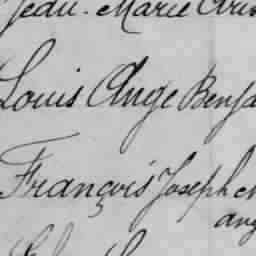 Jean-Marie
Louis Ange Benja
François Joseph